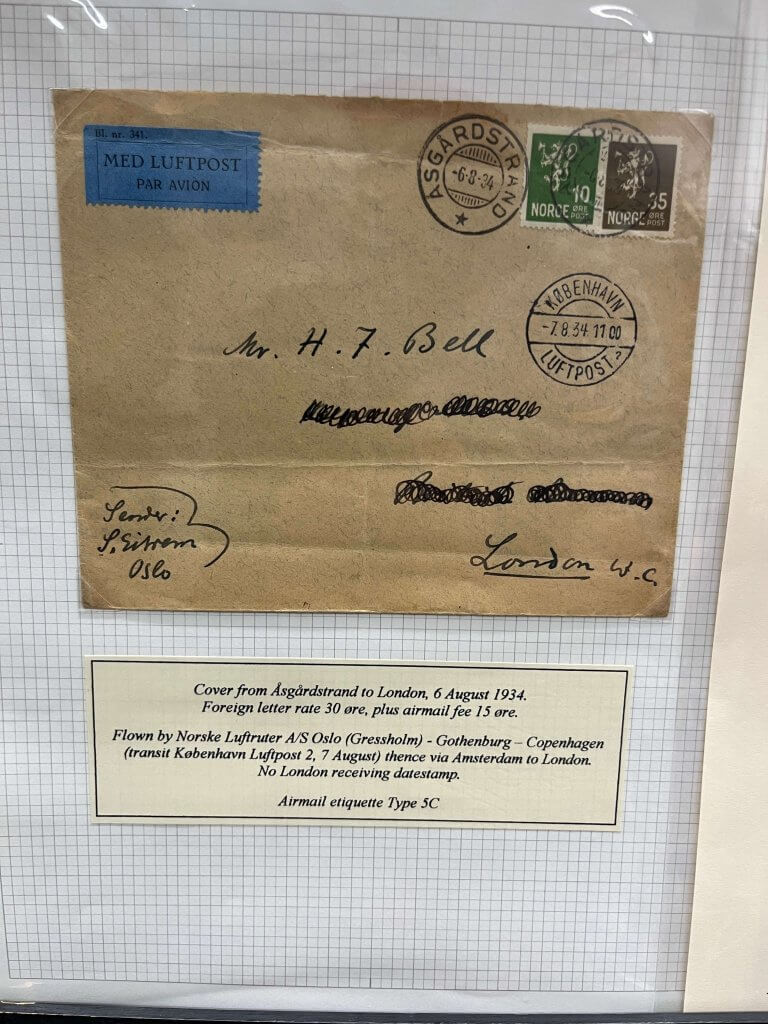 Bl. nr. 341.
MED LUFTPOST
PAR AVION
ÅSGÅRDSTRAND
-6-8-34
10
NORGE ØRE POST
35
NORGE ØRE POST
KØBENHAVN
-7.8.34. 11 00
LUFTPOST. 2
Mr. H. F. Bell
Sender:
S. Eitrem
Oslo
London W.C.
Cover from Åsgårdstrand to London, 6 August 1934.
Foreign letter rate 30 øre, plus airmail fee 15 øre.
Flown by Norske Luftruter A/S Oslo (Gressholm) - Gothenburg – Copenhagen
(transit København Luftpost 2, 7 August) thence via Amsterdam to London.
No London receiving datestamp.
Airmail etiquette Type 5C